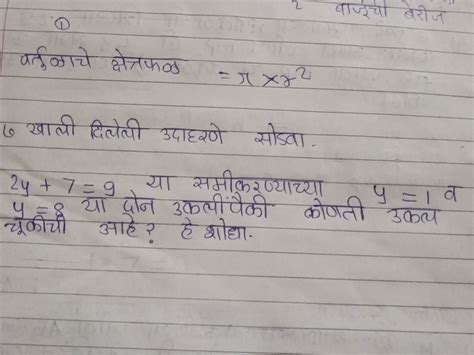 २ बाजूंची बेरीज
①
वर्तुळाचे क्षेत्रफळ = π × r²
७ खाली दिलेली उदाहरणे सोडवा.
2y + 7 = 9 या समीकरणाच्या y = 1 व
y = 8 या दोन उकलींपैकी कोणती उकल
चूकीची आहे? हे शोधा.